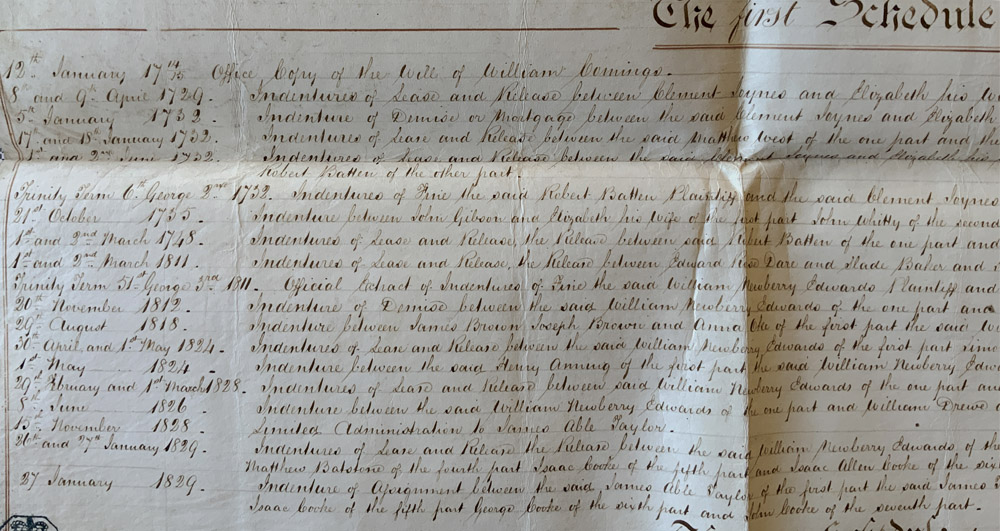 The first Schedule
12th January 17 14/15 Office Copy of the Will of William Comings.
8th and 9th April 1729. Indentures of Lease and Release between Clement Joynes and Elizabeth his
5th January 1732. Indenture of Demise or Mortgage between the said Clement Joynes and Elizabeth
17th and 18th January 1732. Indentures of Lease and Release between the said Matthew West of the one part and the
1st and 2nd June 1732. Indentures of Lease and Release between the said Clement Joynes and Elizabeth his
Robert Batten of the other part.
Trinity Term 6th George 2nd 1732. Indentures of Fine the said Robert Batten Plaintiff and the said Clement Joynes
21st October 1735. Indenture between John Gibson and Elizabeth his Wife of the first part John Whitty of the second
1st and 2nd March 1748. Indentures of Lease and Release, the Release between said Robert Batten of the one part and
1st and 2nd March 1811. Indentures of Lease and Release, the Release between Edward Dare and Slade Baker and
Trinity Term 51st George 3rd 1811. Official Extract of Indentures of Fine the said William Newberry Edwards Plaintiff and
20th November 1812. Indenture of Demise between the said William Newberry Edwards of the one part and
29th August 1818. Indenture between James Brown Joseph Brown and Anna of the first part the said
30th April and 1st May 1824. Indentures of Lease and Release between the said William Newberry Edwards of the first part
1st May 1824. Indenture between the said Henry Anning of the first part the said William Newberry
29th February and 1st March 1828. Indentures of Lease and Release between said William Newberry Edwards of the one part
8th June 1826. Indenture between the said William Newberry Edwards of the one part and William Drewe
15th November 1828. Limited Administration to James Able Taylor.
26th and 27th January 1829. Indentures of Lease and Release the Release between the said William Newberry Edwards of the
Matthew Batstone of the fourth part Isaac Cooke of the fifth part and Isaac Allen Cooke of the
27 January 1829. Indenture of Assignment between the said James Able Taylor of the first part the said James
Isaac Cooke of the fifth part George Cooke of the sixth part and John Cooke of the seventh part.